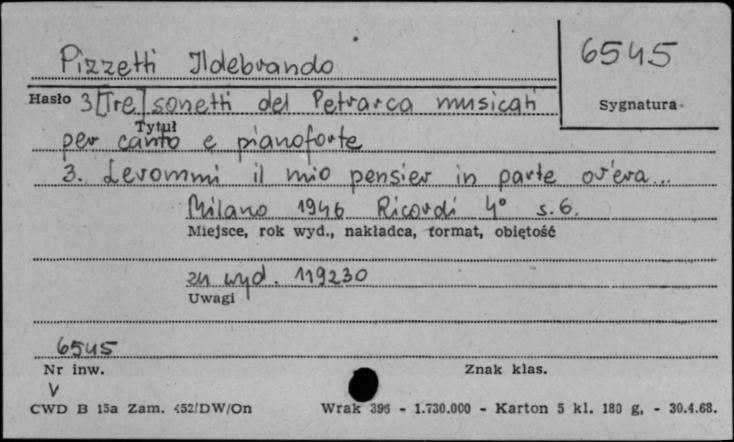 Pizzetti Ildebrando
6545
Hasło 3 [Tre] sonetti del Petrarca musicati
Sygnatura
Tytuł
per canto e pianoforte
3. Levommi il mio pensier in parte ov'era...
Milano 1946 Ricordi 4° s. 6.
Miejsce, rok wyd., nakładca, format, objętość
zn wyd. 119230
Uwagi
6545
Nr inw.
Znak klas.
V
CWD B 15a Zam. 452/DW/On
Wrak 396 - 1.730.000 - Karton 5 kl. 180 g. - 30.4.68.